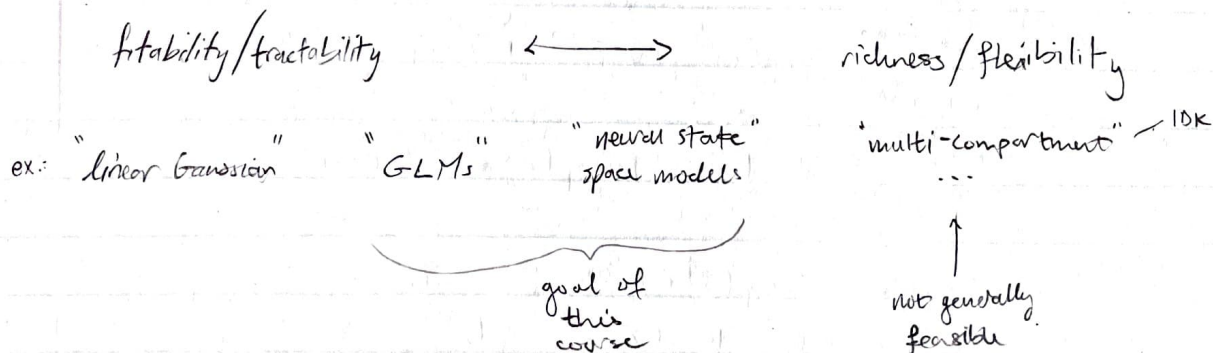 fitability/tractability ⟷ richness/flexibility
ex.: "linear Gaussian" "GLMs" "neural state space models" "multi-compartment" — IDK
...
goal of this course
not generally feasible